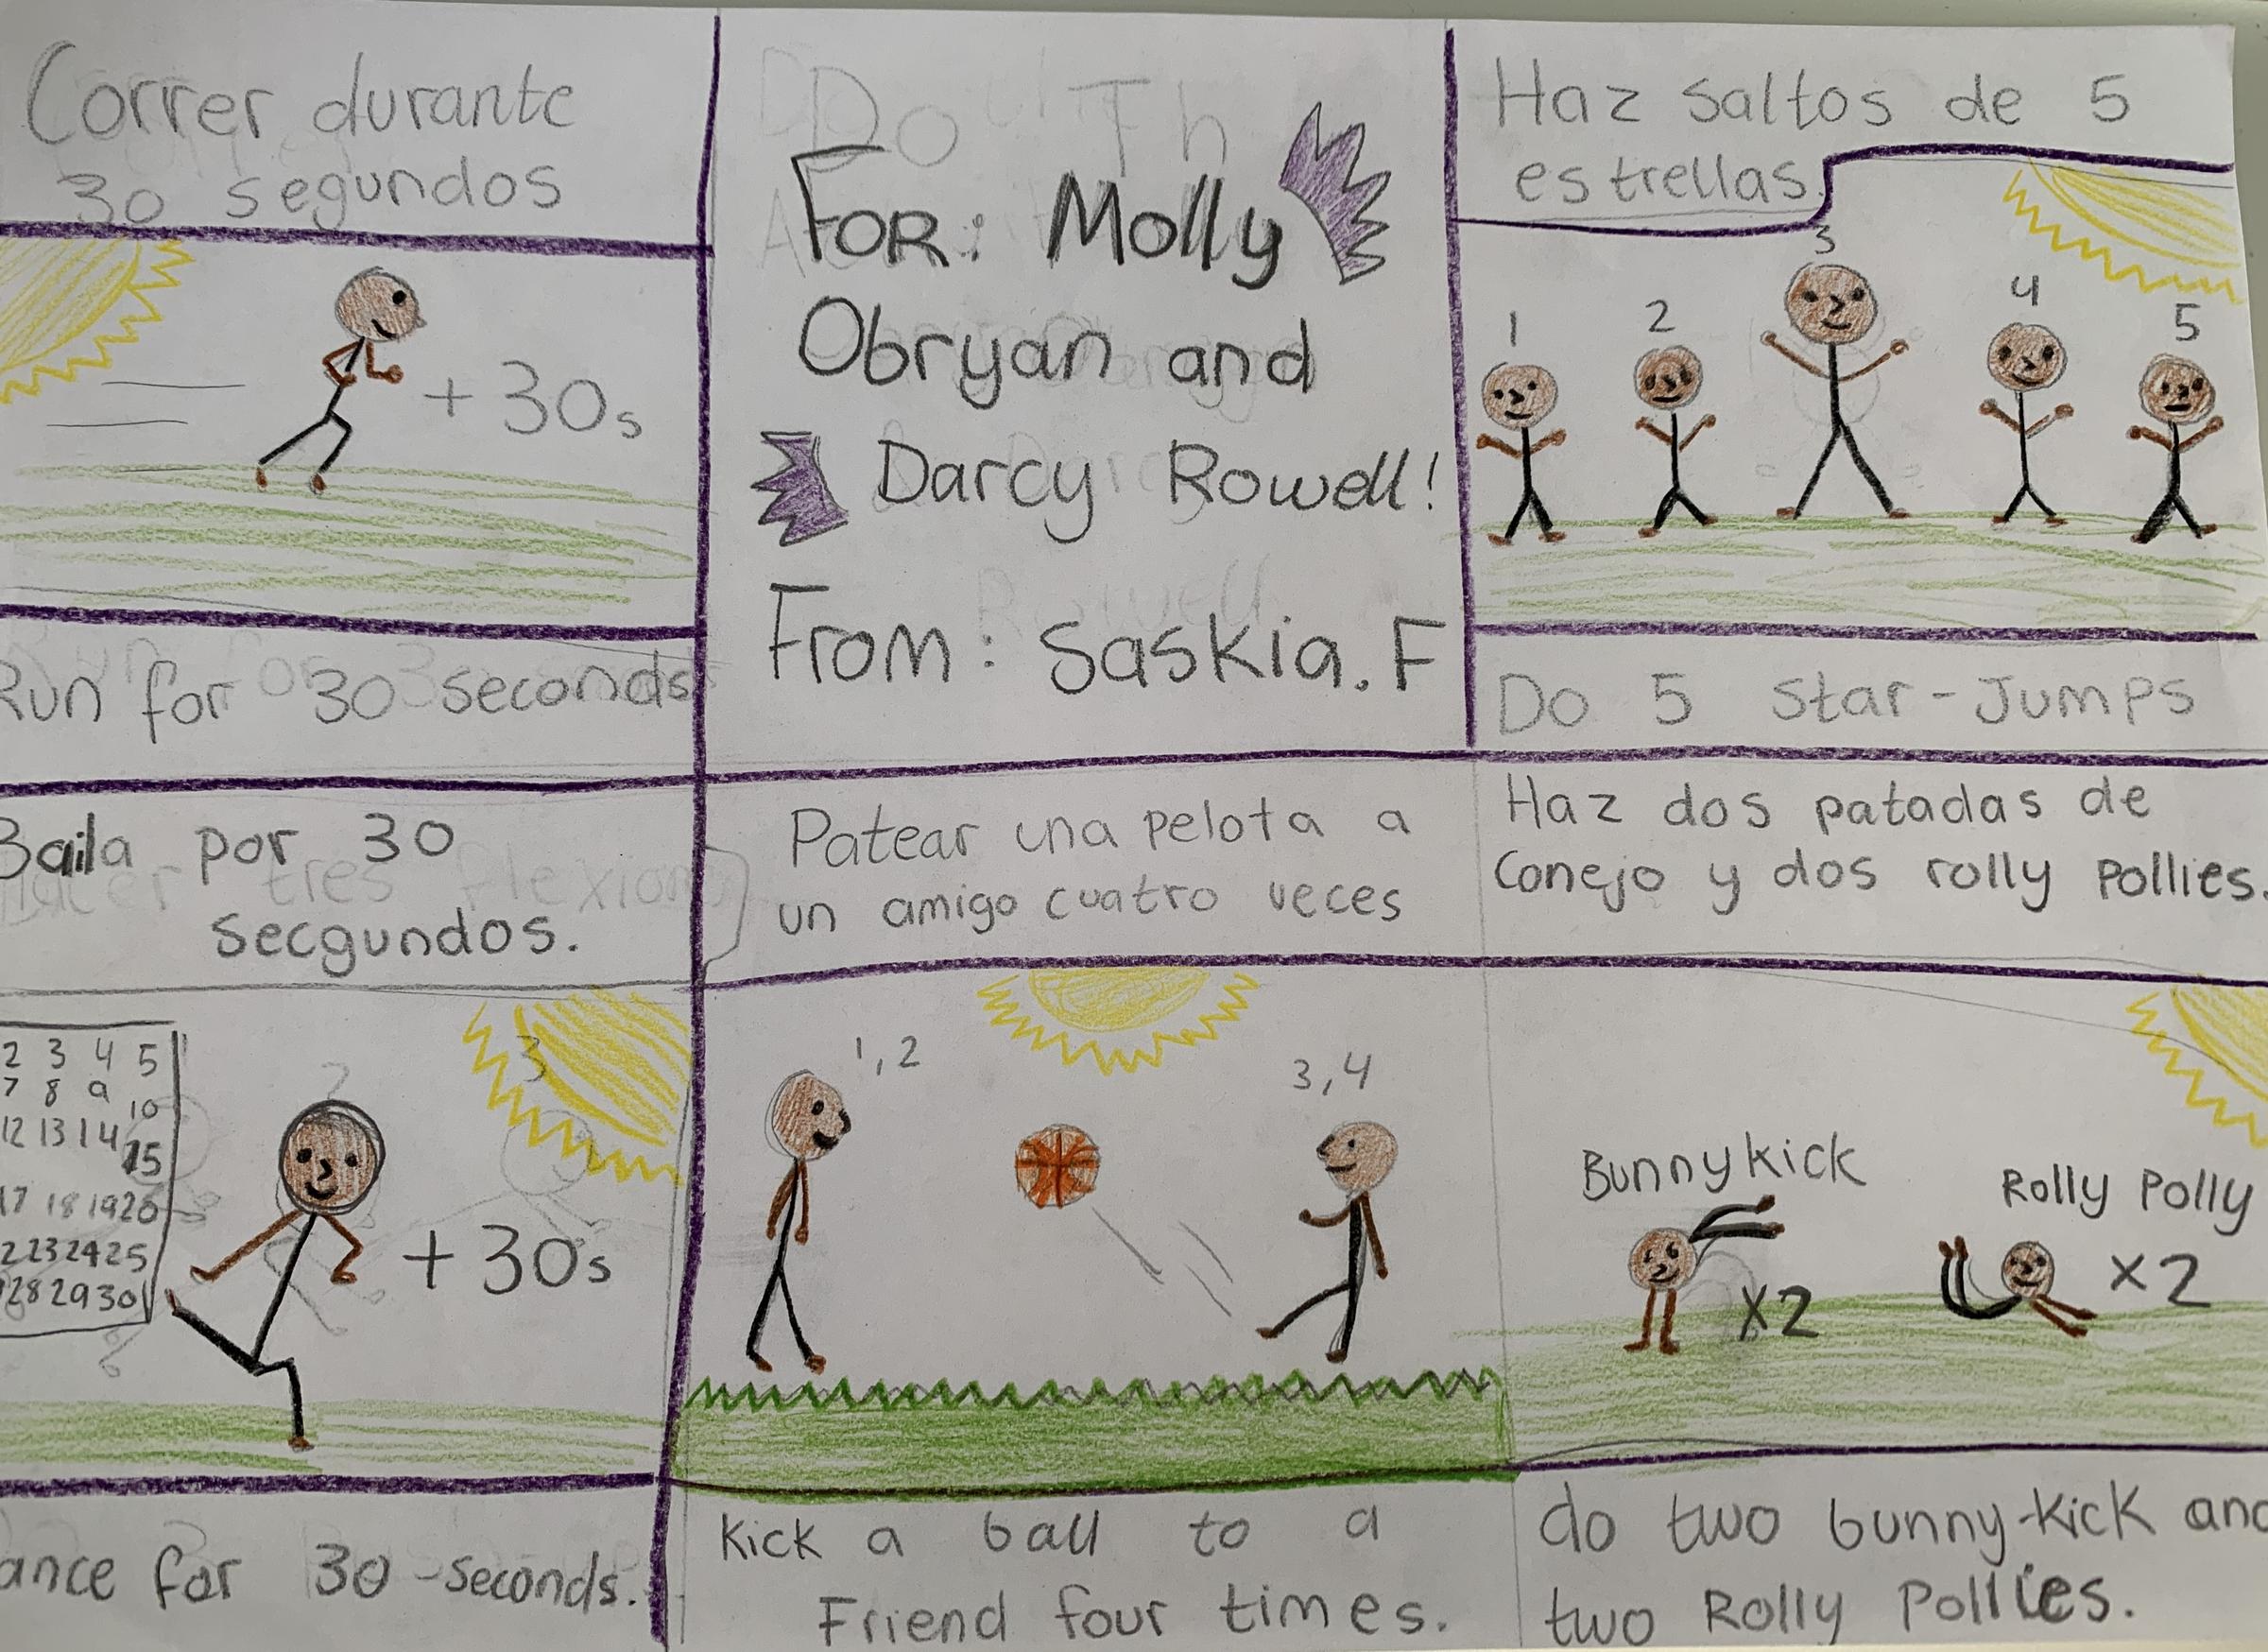 Correr durante
30 segundos
+ 30s
Run for 30 seconds
FOR: Molly
Obryan and
Darcy Rowell!
From: Saskia.F
Haz saltos de 5
estrellas.
1 2 3 4 5
Do 5 Star-Jumps
Baila por 30
Secgundos.
2 3 4 5
7 8 9 10
12 13 14 15
17 18 19 20
2 23 24 25
28 29 30
+ 30s
ance for 30-seconds.
Patear una pelota a
un amigo cuatro veces
1,2
3,4
Kick a ball to a
Friend four times.
Haz dos patadas de
Conejo y dos rolly pollies.
Bunny kick
X2
Rolly Polly
X2
do two bunny-kick and
two Rolly Pollies.